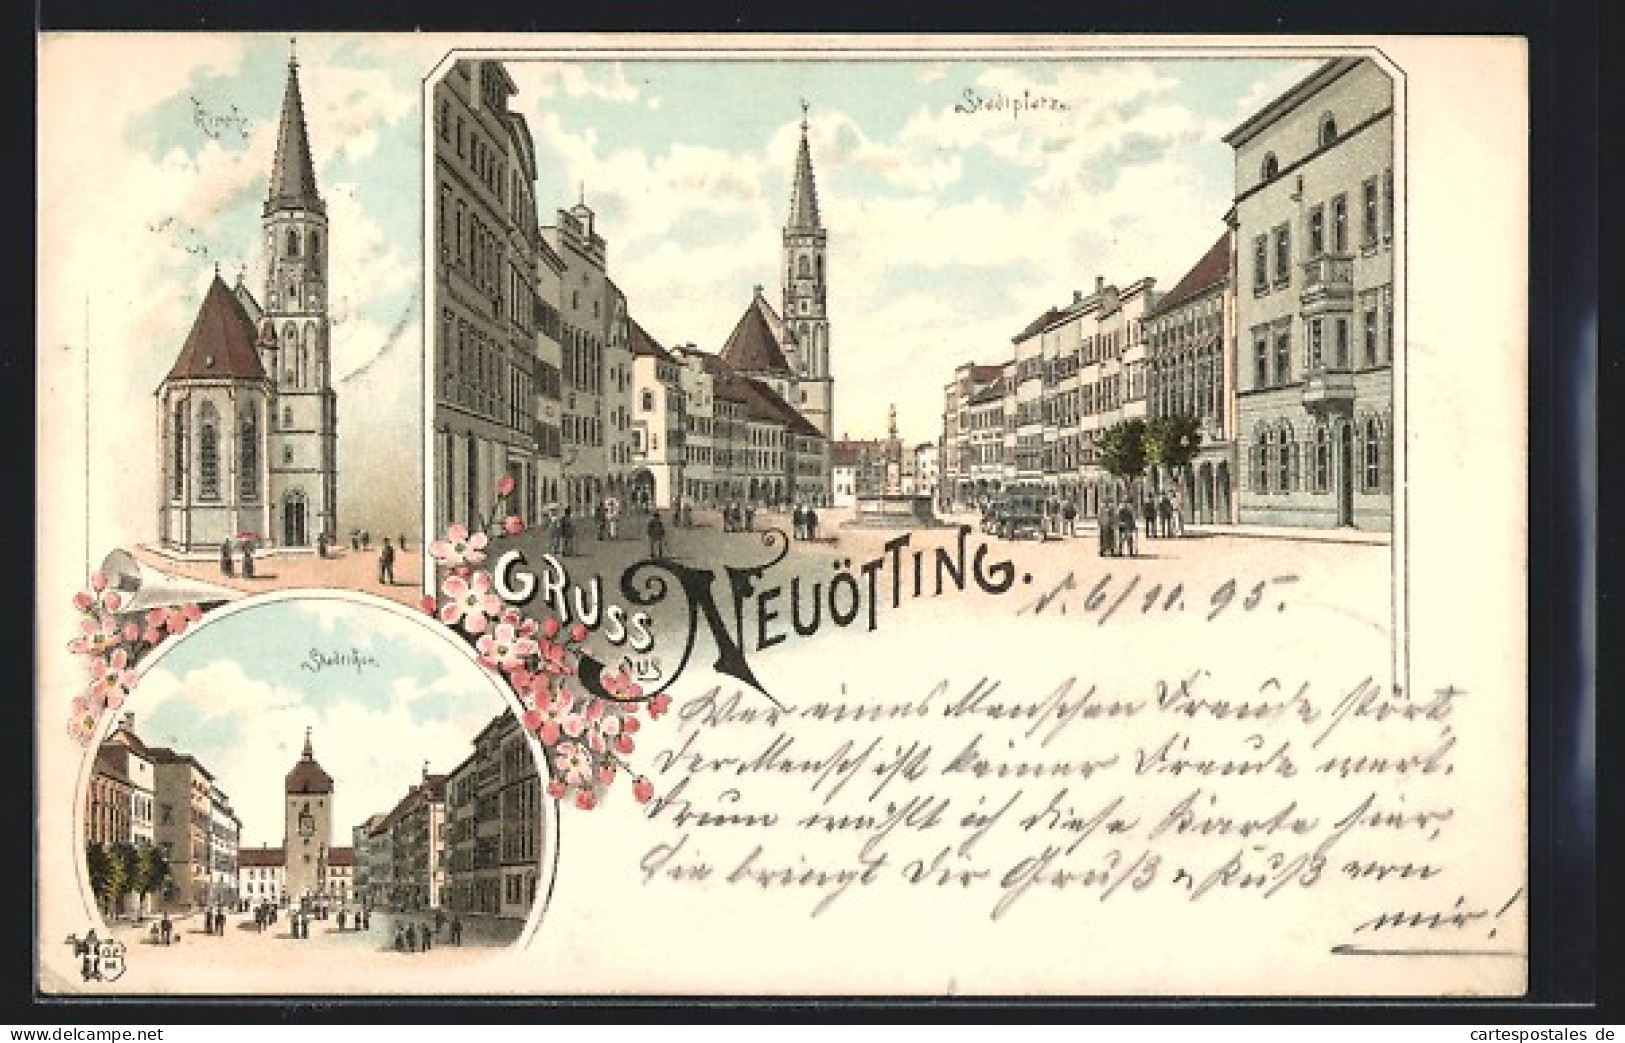 Kirche.
Stadtplatz.
GRUSS
aus
NEUÖTTING.
d. 6/11. 95.
Stadtthor.
Wer eines Menschen Freude stört,
der Mensch ist keiner Freude wert.
Drum wählt ich diese Karte hier,
Sie bringt Dir Gruß u. Kuß von
mir!
OZM
www.delcampe.net
cartespostales de